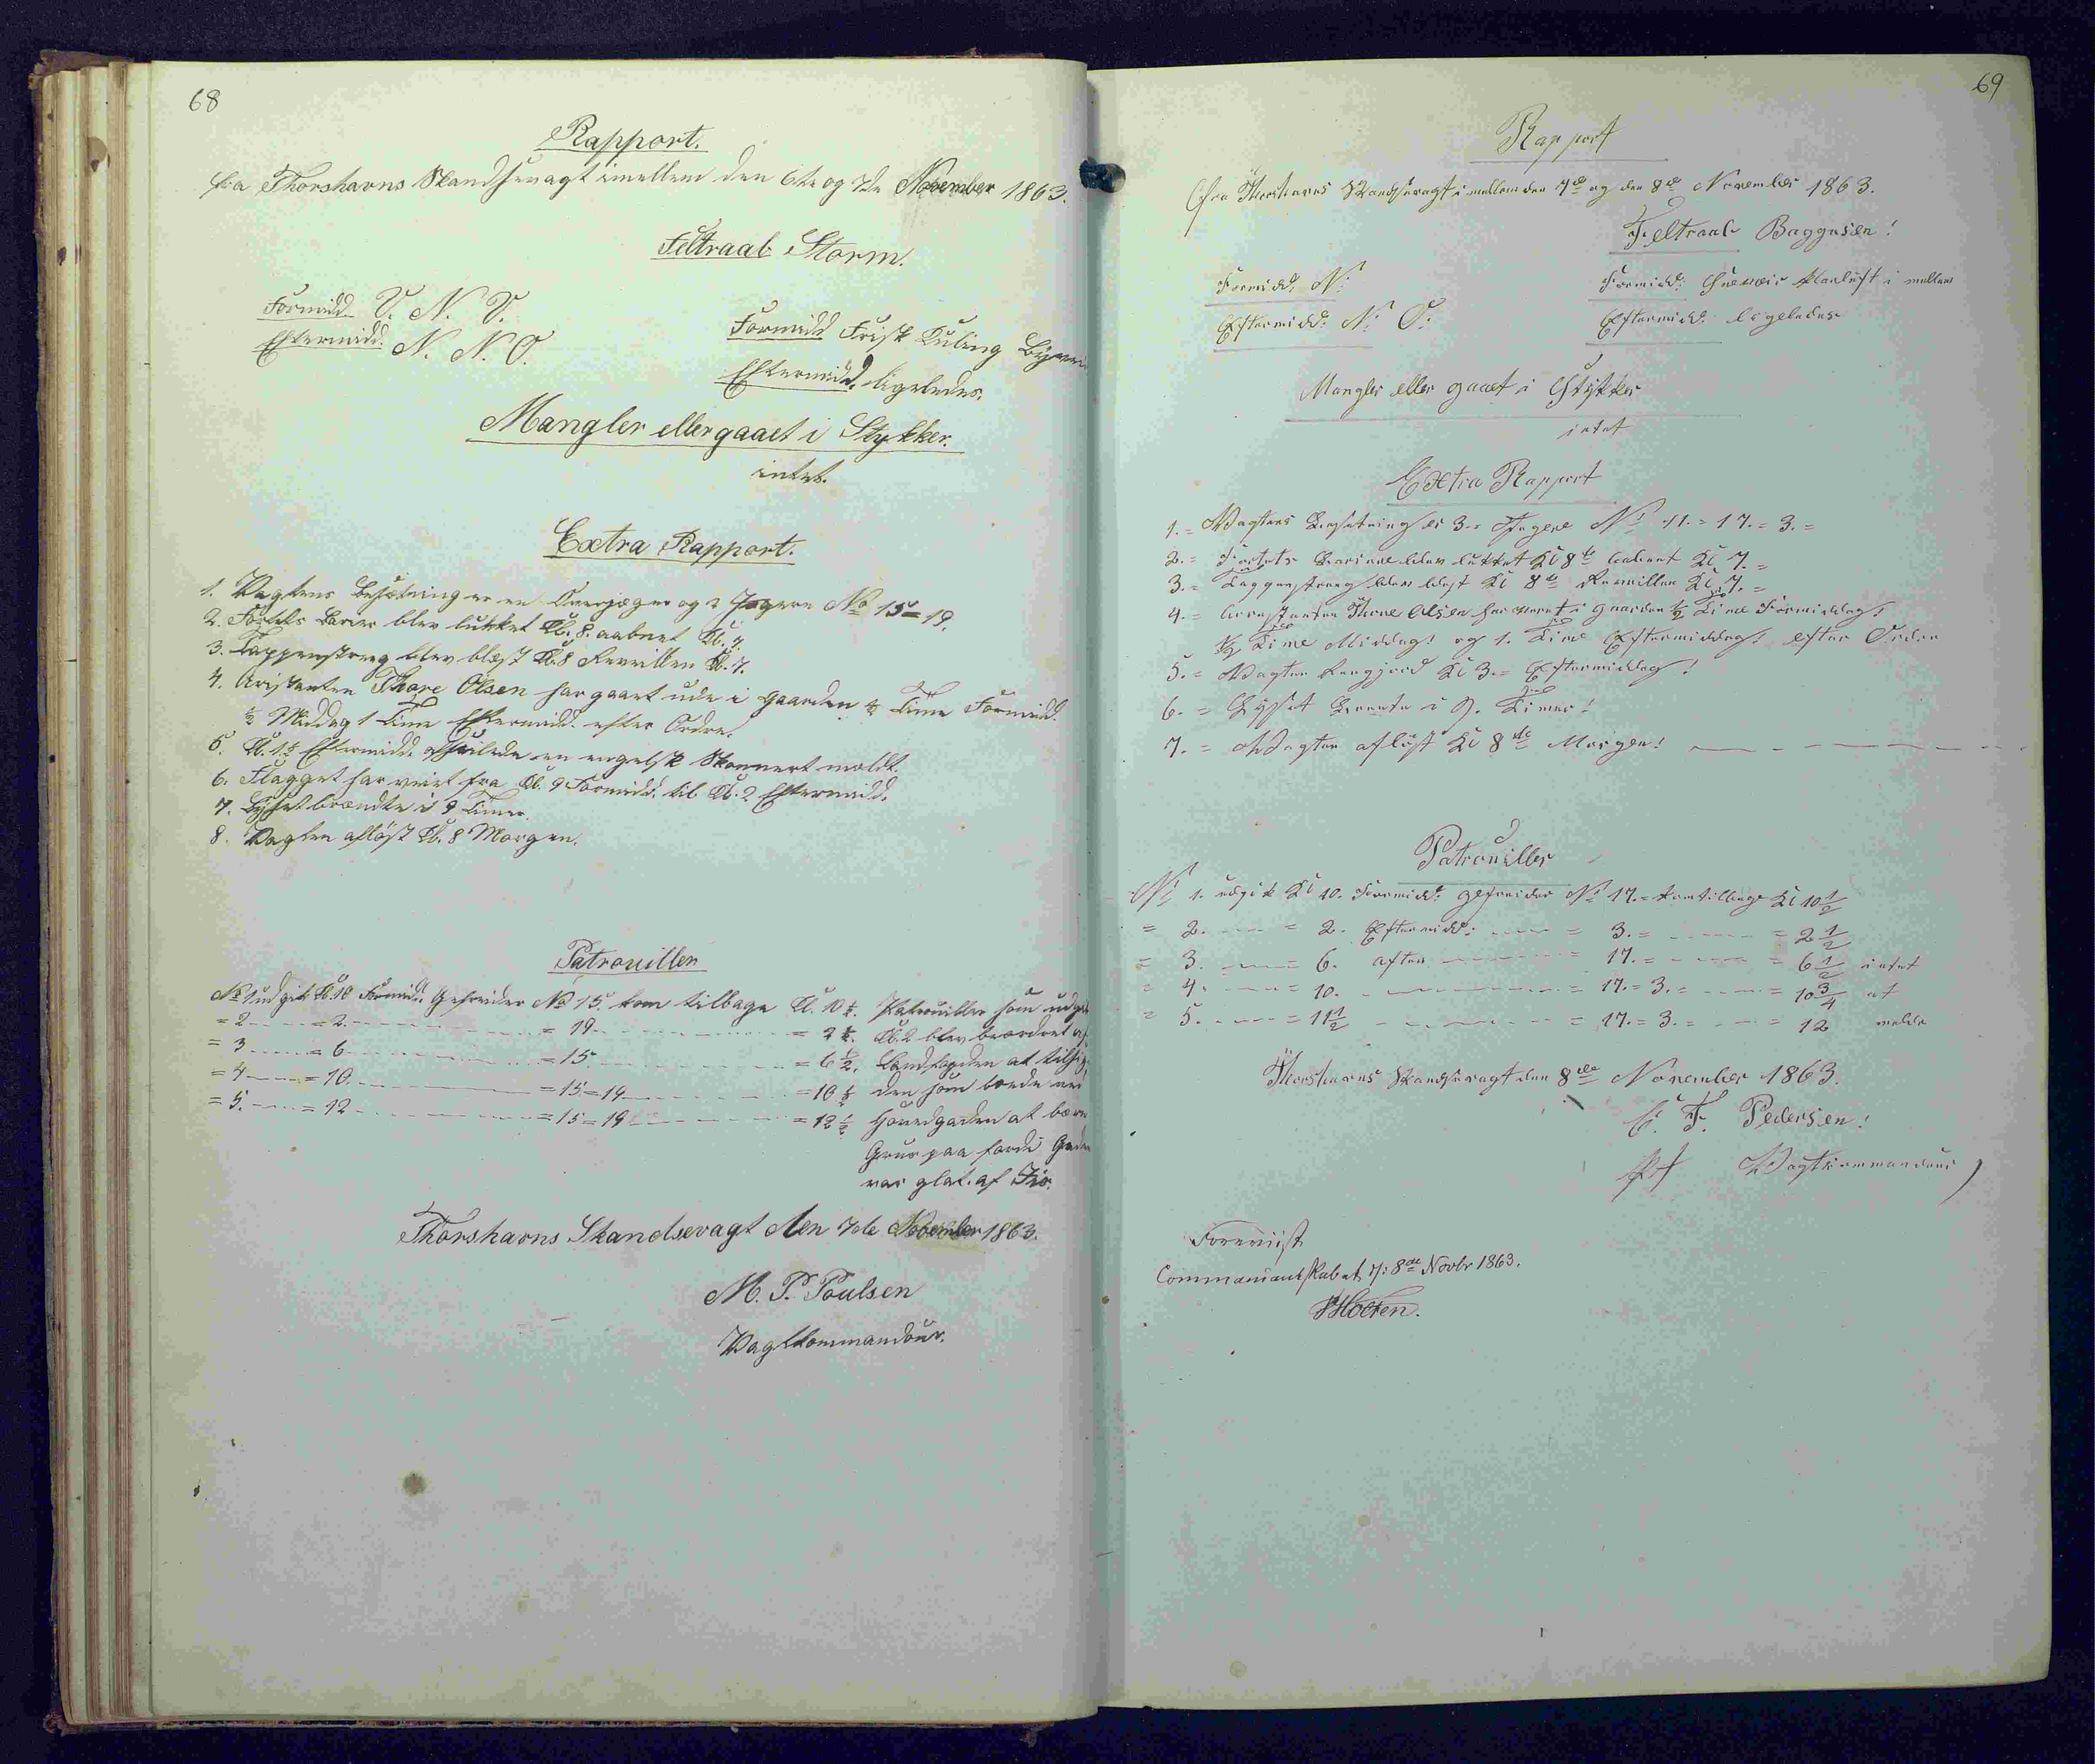 68
Rapport.
fra Thorshavns Skandsevagt imellem den 6te og 7de November 1863.
Feltraab Storm.
Formidd. V. N. V.
Eftermidd. N. N. O.
Formidd. Frisk Kuling
Eftermidd. ligeledes.
Mangler eller gaaet i Stykker.
intet.
Extra Rapport.
1. Vagtens Besætning er en Overjæger og 2 Jægere No 15 = 19.
2. Fortets Barier blev lukket Kl. 8. aabnet Kl. 7.
3. Tappenstreg blev blæst Kl. 8 Revillen Kl. 7.
4. Aristanten Thore Olsen har gaaet ude i Gaarden ½ Time Formidd.
½ Middag 1 Time Eftermidd. efter Ordre.
5. Eftermidd. afseilede en engelsk Skonnert
6. Flagget har veiet fra Kl. 9 Formidd. til Kl. 2 Eftermidd.
7. Lyset brændte i 9 Timer.
8. Vagten afløst Kl. 8 Morgen.
Patrouiller
No 1 udgik Kl. 10 Formidd. Gefreider No 15. kom tilbage Kl. 10 ½. Patrouillen som udgik
= 2 = 2 = 19 = 2 ½. Kl. 2 blev beordret af
= 3 = 6 = 15 = 6 ½. Landfogden at tilsige
= 4 = 10 = 15 = 19 = 10 ½ dem som boede ved
= 5. = 12 = 15 = 19 = 12 ½ Hovedgaden at bære
Grus paa fordi Gaden
var glat af Iis.
Thorshavns Skandsevagt den 7de November 1863.
M. P. Poulsen
Vagtkommandeur.
69
Rapport
fra Thorshavns Skandsevagt i mellem den 7de og den 8de November 1863.
Feltraab Baggesen!
Formidd: N:
Eftermidd: N: O:
Formidd: Sneveir Klarluft i mellem
Eftermidd: ligeledes
Mangler eller gaaet i Stykker
intet
Extra Rapport
1. = Vagtens Besætning er 3. Jægere No 11. = 17. = 3. =
2. = Fortets Bariere blev lukket Kl 8te aabnet Kl 7. =
3. = Tappenstreg blev blæst Kl 8te Revillen Kl 7. =
4. = Arrestanten Thore Olsen har været i Gaarden ½ Time Formiddag!
½ Time Middag! og 1. Time Eftermiddag! efter Orden
5. = Vagten Rengjord Kl 3. = Eftermiddag!
6. = Lyset Brente i 9. Timer!
7. = Vagten afløst Kl 8de Morgen!
Patrouiller
No 1. udgik Kl 10. Formidd: Gefreider No 17. = kom tilbage Kl 10 ½
= 2. = 2. Eftermidd: = 3. = = 2 ½
= 3. = 6. Aften = 17. = = 6 ½ intet
= 4. = 10. = 17. = 3. = = 10 ¾ at
= 5. = 11 ½ = 17. = 3. = = 12 melde
Thorshavns Skandsevagt den 8de November 1863.
F. Pedersen!
Vagtkommandeur
Foreviist
Commandantskabet, 8de Novbr 1863.